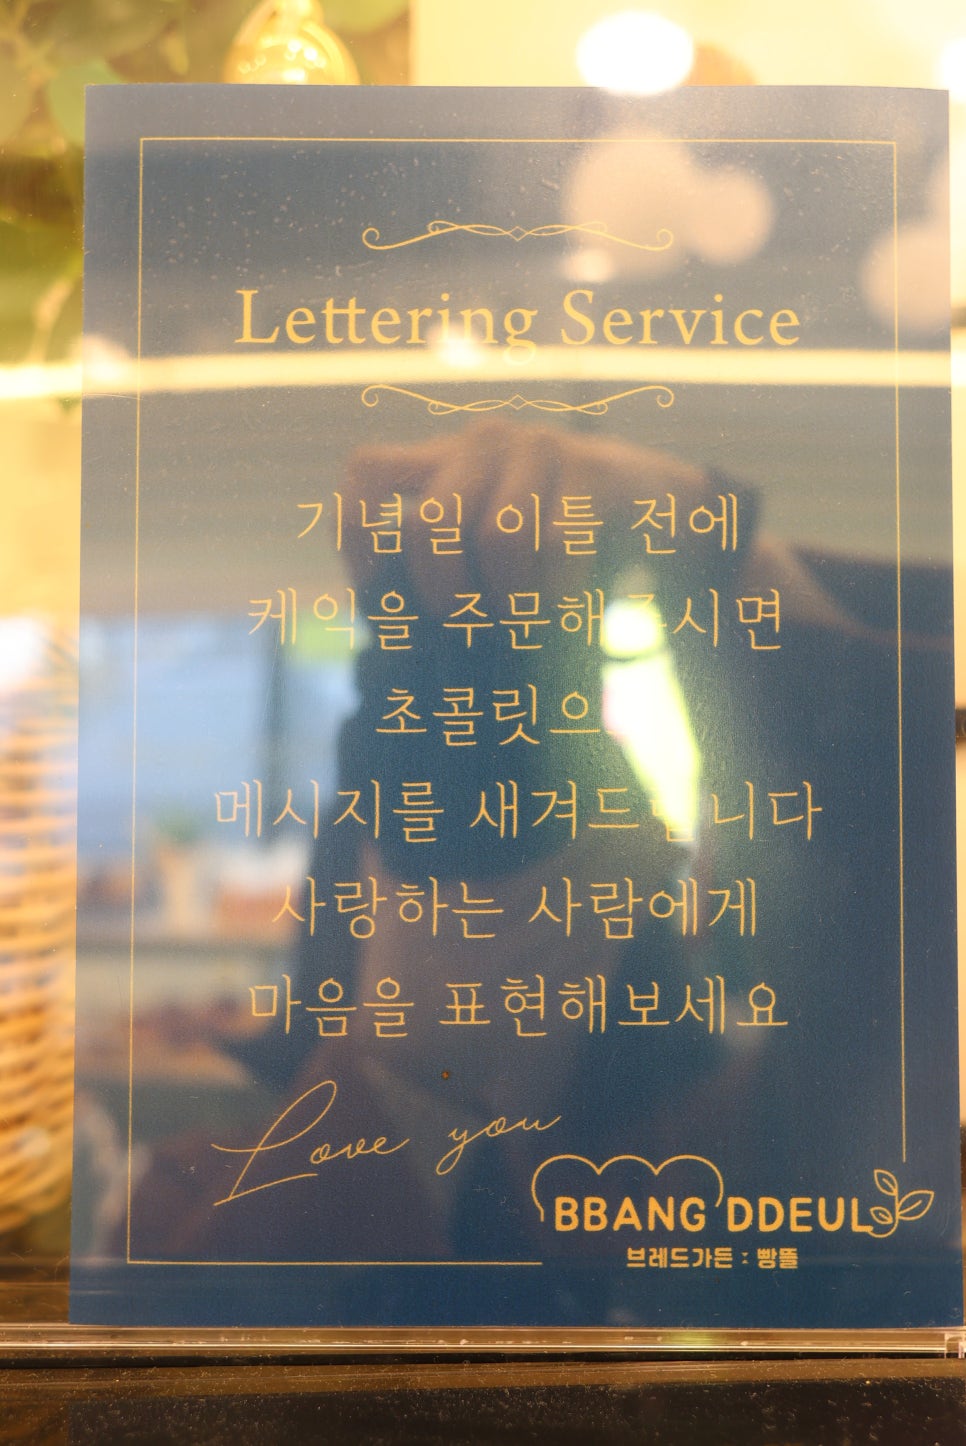 Lettering Service
기념일 이틀 전에
케익을 주문해주시면
초콜릿으로
메시지를 새겨드립니다
사랑하는 사람에게
마음을 표현해보세요
Love you
BBANG DDEUL
브레드가든 : 빵뜰